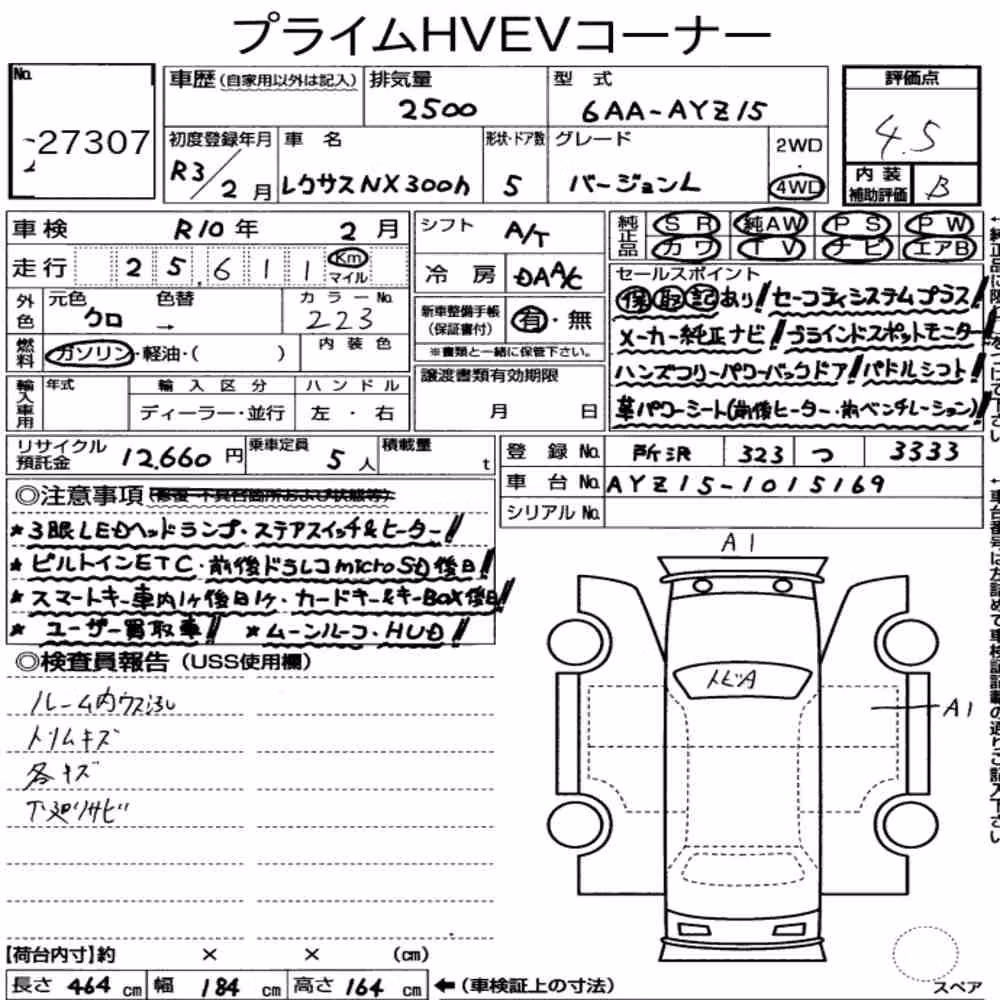 プライムHVEVコーナー
No.
27307
車歴(自家用以外は記入)
排気量
2500
型式
6AA-AYZ15
評価点
4.5
初度登録年月
R3/2月
車名
レクサスNX300h
形状・ドア数
5
グレード
バージョンL
2WD
・
4WD
内装
補助評価
B
車検 R10年 2月
走行 25,611 Km
マイル
シフト A/T
冷房 DAA/C
純正品 SR 純AW PS PW
カワ TV ナビ エアB
外色
元色 クロ
色替 →
カラーNo.
223
燃料
ガソリン・軽油・( )
内装色
新車整備手帳
(保証書付)
有・無
※書類と一緒に保管下さい。
セールスポイント
保取記あり!セーフティシステムプラス!
メーカー純正ナビ!ブラインドスポットモニター!
ハンズフリーパワーバックドア!パドルシフト!
革パワーシート(前後ヒーター・前ベンチレーション)!
輸入車用
年式
輸入区分
ハンドル
ディーラー・並行
左・右
譲渡書類有効期限
月 日
リサイクル
預託金
12,660円
乗車定員
5人
積載量
t
登録No. 所沢 323 つ 3333
車台No. AYZ15-1015169
シリアルNo.
◎注意事項(修復・不具合箇所および状態等)
★3眼LEDヘッドランプ・ステアスイッチ&ヒーター!!
★ビルトインETC・前後ドラレコmicroSD後日!
★スマートキー車内1ヶ後日1ヶ・カードキー&キーBOX後日!
★ユーザー買取車! ★ムーンルーフ・HUD!
◎検査員報告(USS使用欄)
ルーム内ウス汚レ
トリムキズ
各キズ
下廻リサビ
A1
トビA
A1
【荷台内寸】約 × × (cm)
長さ 464 cm 幅 184 cm 高さ 164 cm ←(車検証上の寸法)
スペア